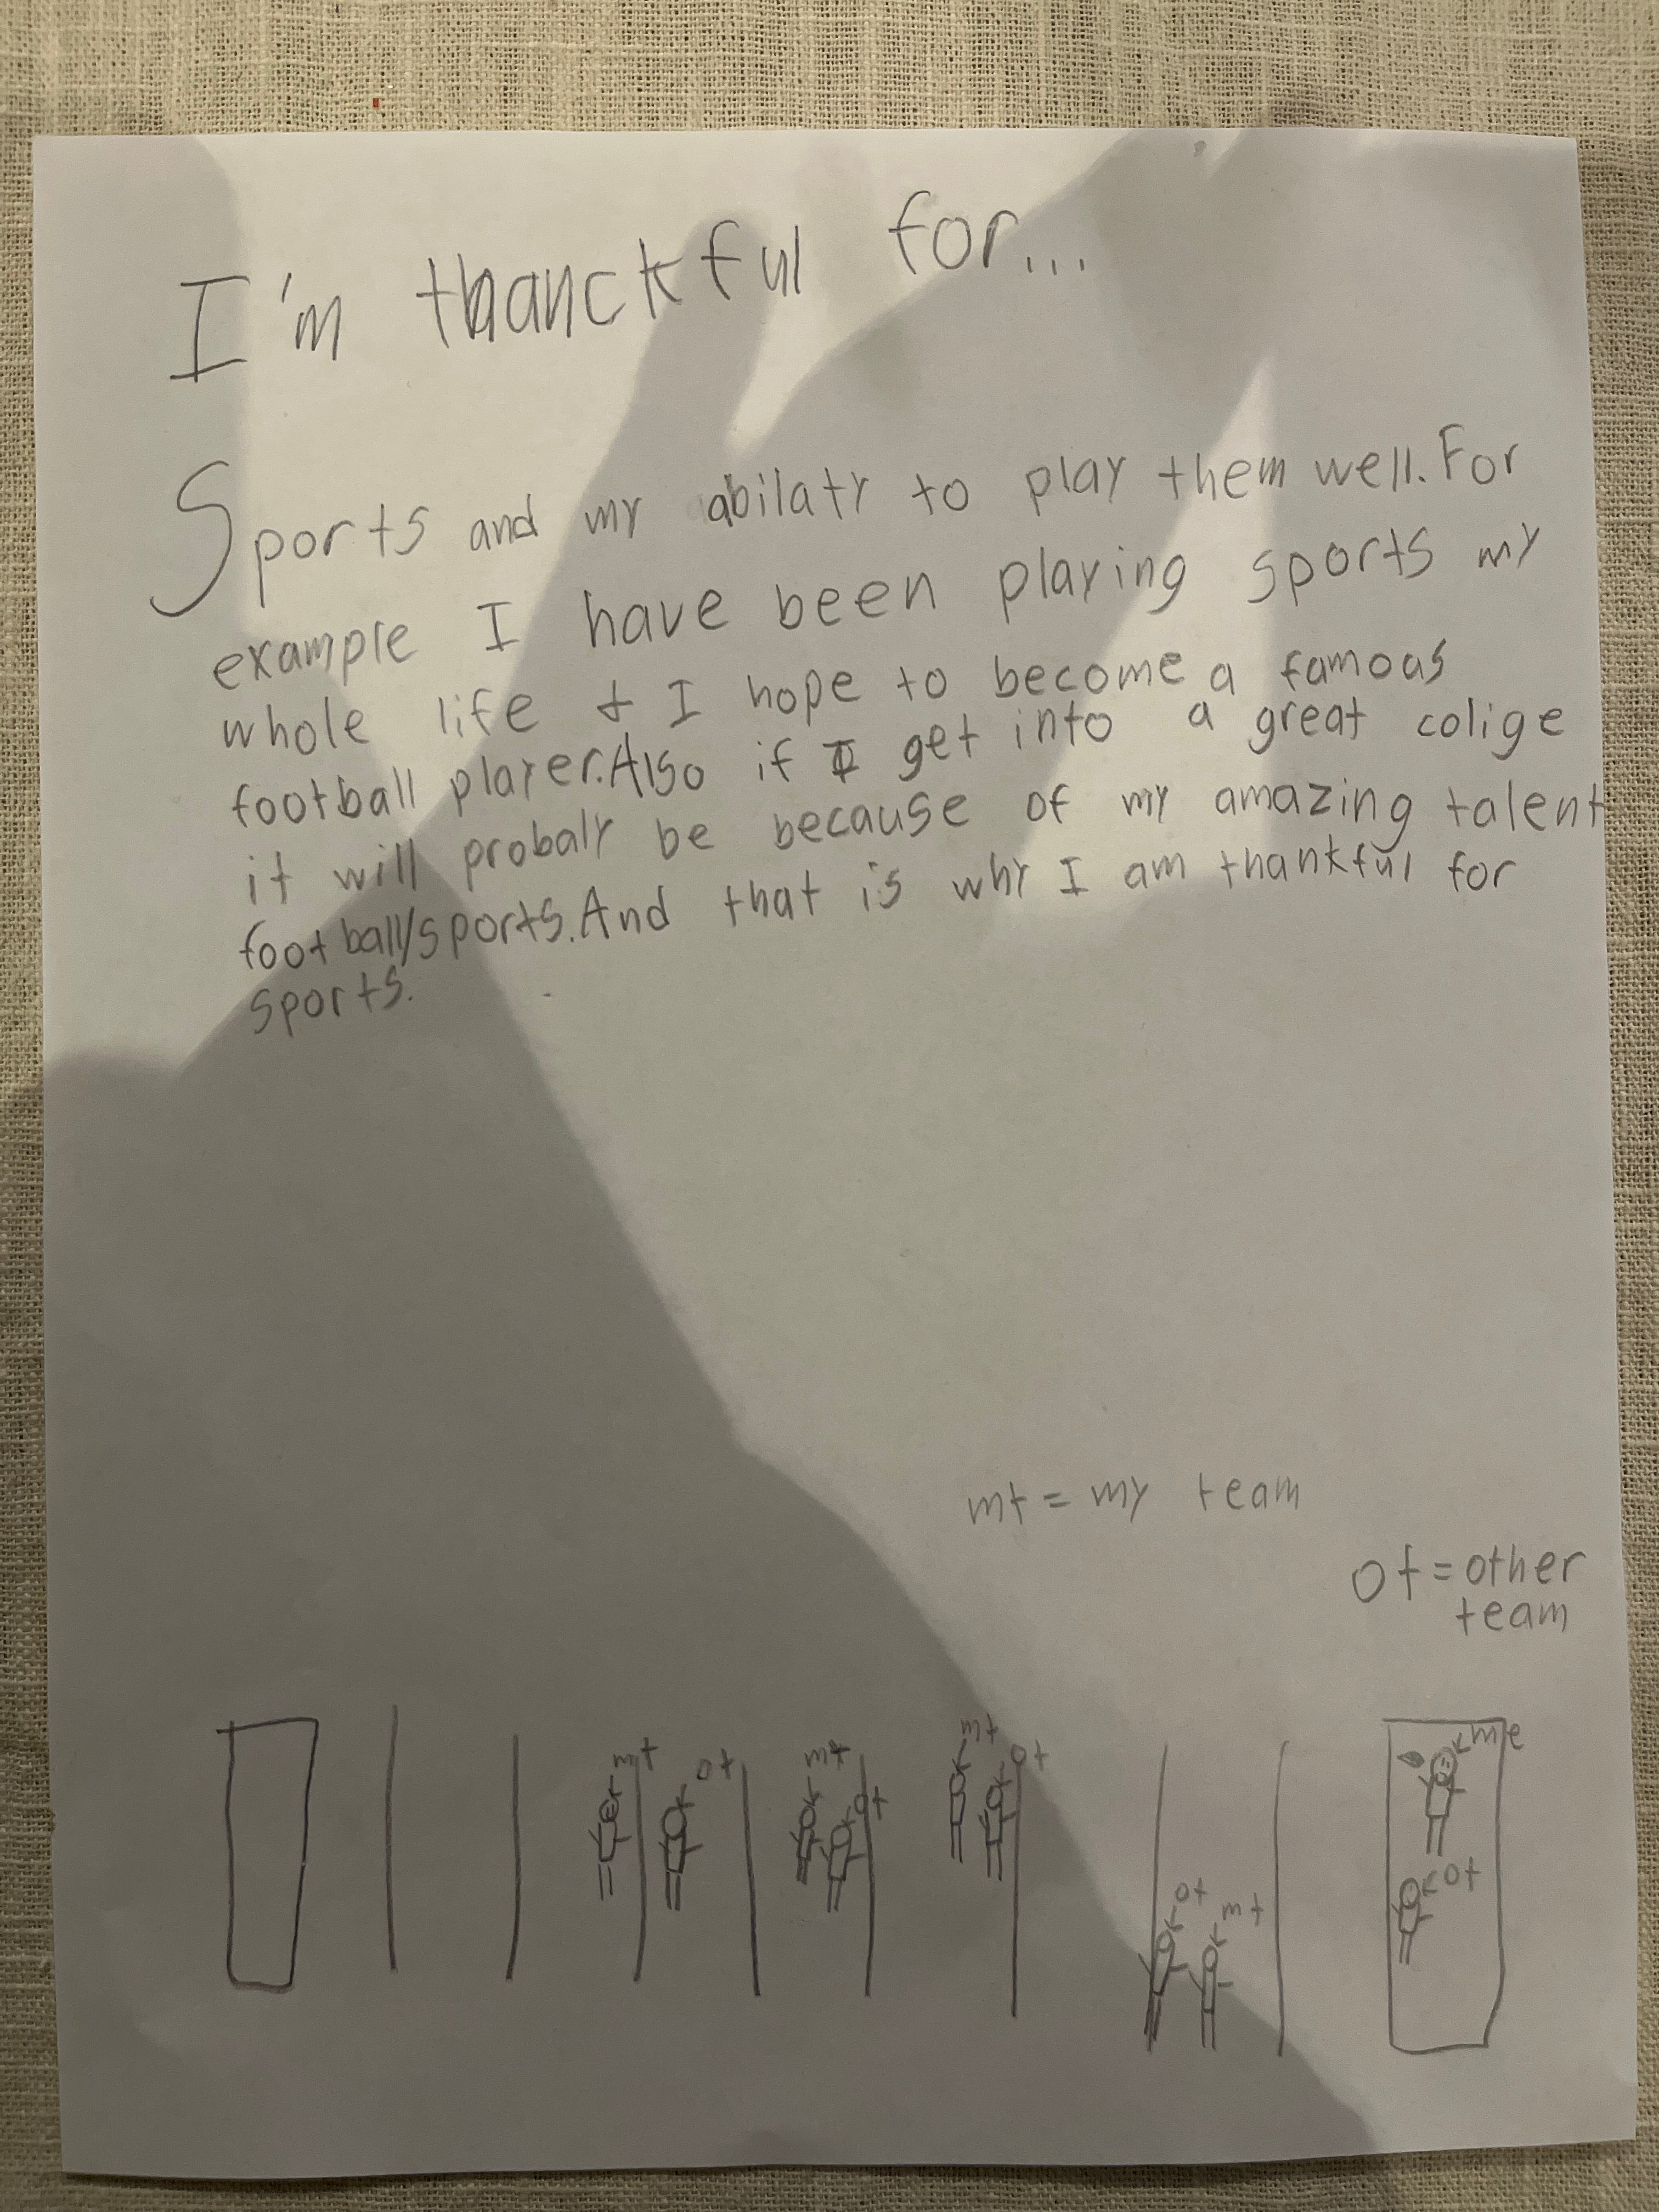 I'm thanckful for...
Sports and my abilaty to play them well. For
example I have been playing sports my
whole life & I hope to become a famous
football player. Also if I get into a great colige
it will probaly be because of my amazing talent
football/sports. And that is why I am thankful for
sports.
mt = my team
ot = other
team
mt ot mt ot mt ot ot mt me ot